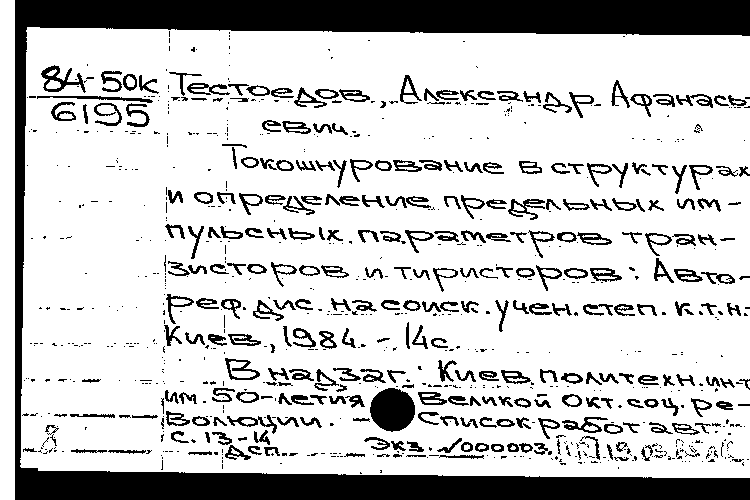 84-50к
6195
Тестоедов, Александр Афанась-
евич.
Токошнурование в структурах
и определение предельных им-
пульсных параметров тран-
зисторов и тиристоров: Авто-
реф. дис. на соиск. учен. степ. к.т.н.-
Киев, 1984. - 14с.
В надзаг.: Киев. политехн. ин-т
им. 50-летия Великой Окт. соц. ре-
волюции. - Список работ авт.:
с. 13-14
ДСП
Экз. №000003.
8